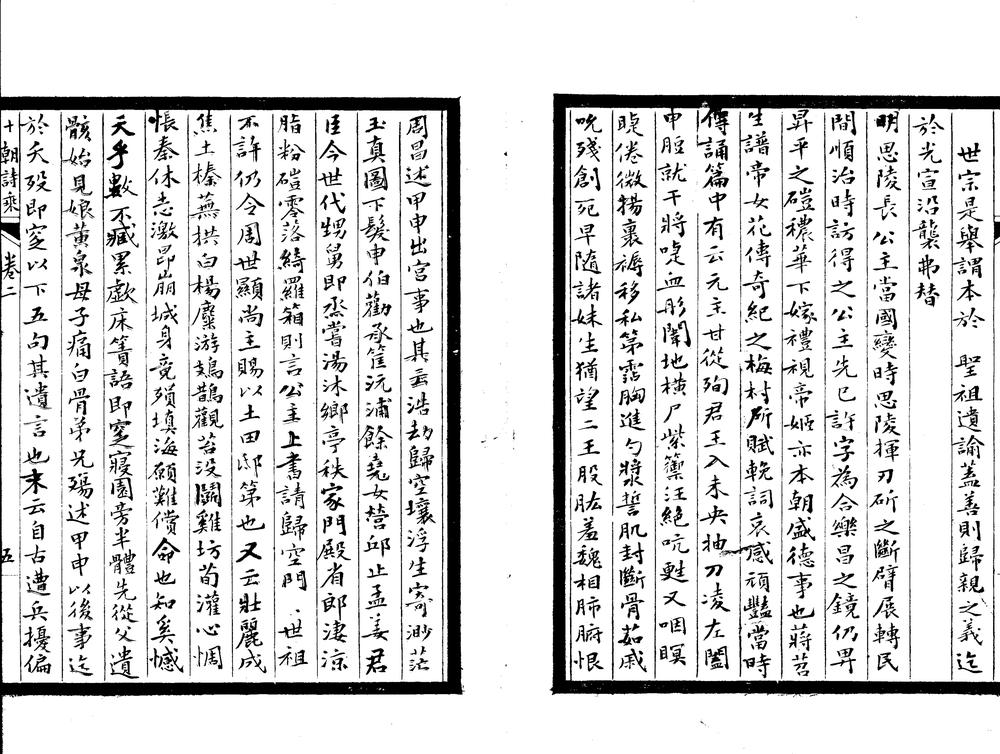 世宗是舉謂本於　聖祖遺諭蓋善則歸親之義迄
於光宣沿襲弗替
明思陵長公主當國變時思陵揮刀斫之斷臂展轉民
間順治時訪得之公主先已許字為合樂昌之鏡仍畀
昇平之磑穠華下嫁禮視帝姬亦本朝盛德事也蔣苕
生譜帝女花傳奇紀之梅村所賦輓詞哀感頑豔當時
傳誦篇中有云元主甘從殉君王入未央抽刀凌左闔
申脰就干將啑血彤闈地橫尸紫籞汪絕吭甦又咽瞑
睫倦微揚裹褥移私第霑胸進勺漿誓肌封斷骨茹戚
吮殘創死早隨諸妹生猶望二王股肱羞魏相肺腑恨
周昌述甲申出宮事也其云浩劫歸空壤浮生寄渺茫
玉真圖下髮申伯勸承筐沅浦餘堯女營邱止孟姜君
臣今世代甥舅即烝嘗湯沐鄉亭秩家門殿省郎淒涼
脂粉磑零落綺羅箱則言公主上書請歸空門　世祖
不許仍令周世顯尚主賜以土田邸第也又云壯麗成
焦土榛蕪拱白楊麋游鳷鵲觀苔沒鬭雞坊荀灌心惆
悵秦休志激昂崩城身竟殞填海願難償命也知奚憾
天乎數不臧累歔床簀語即窆寢園旁半體先從父遺
骸始見娘黃泉母子痛白骨弟兄殤述甲申以後事迄
於夭歿即窆以下五句其遺言也末云自古遭兵擾偏
十朝詩乘
卷二
五